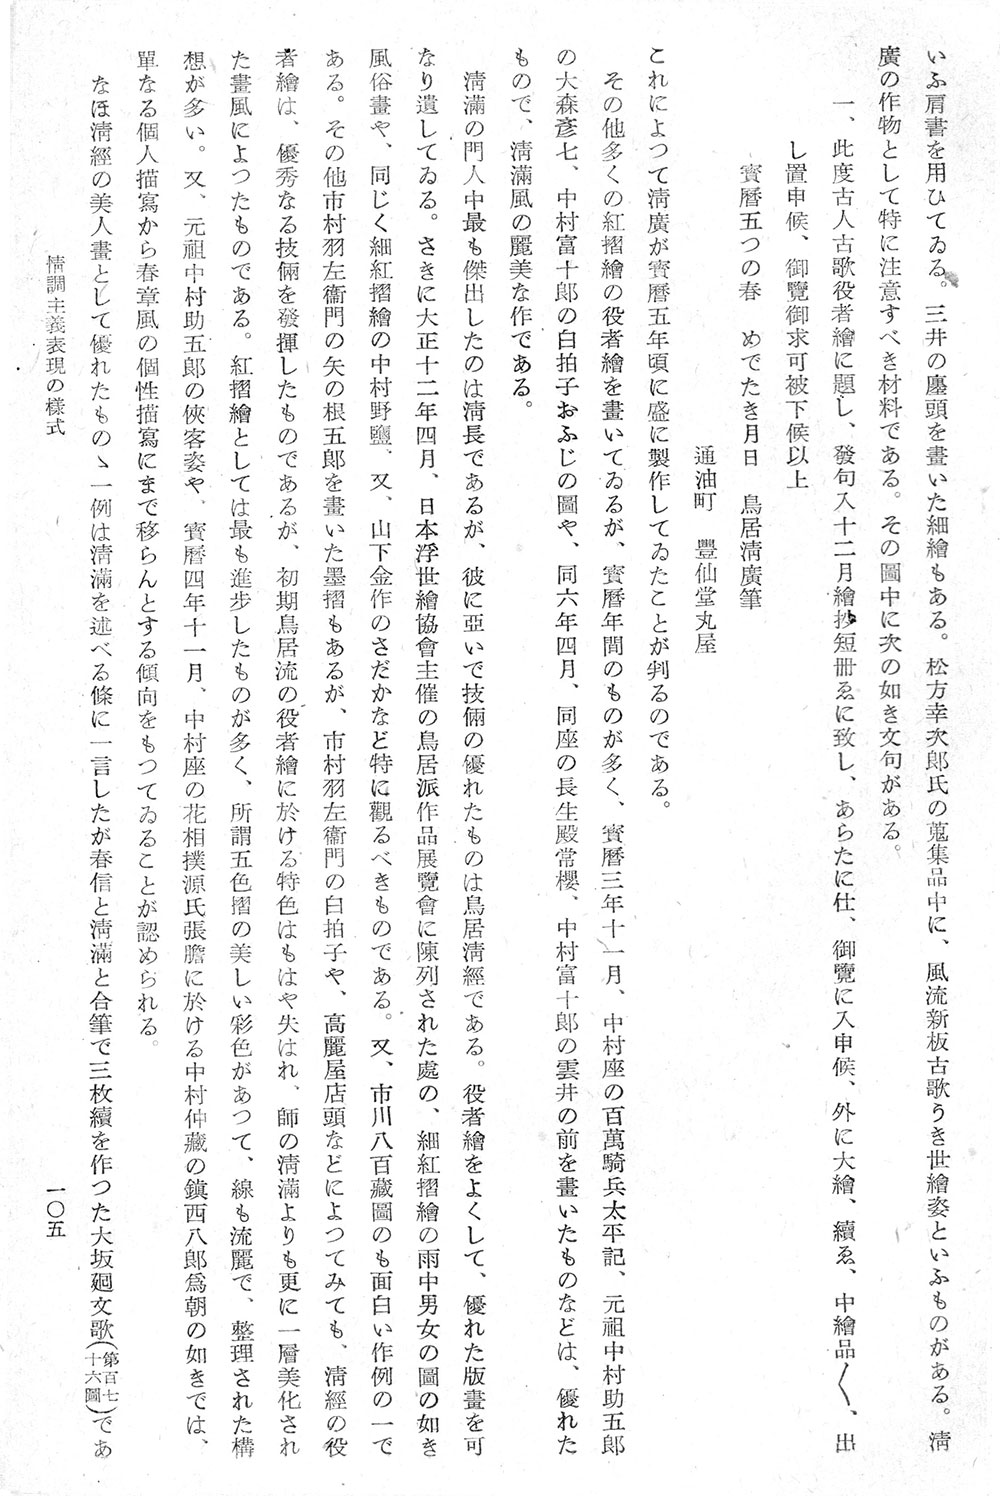 いふ肩書を用ひてゐる。三井の塵頭を畫いた細繪もある。松方幸次郎氏の蒐集品中に、風流新板古歌うき世繪姿といふものがある。淸
廣の作物として特に注意すべき材料である。その圖中に次の如き文句がある。
一、此度古人古歌役者繪に題し、發句入十二月繪抄短冊ゑに致し、あらたに仕、御覽に入申候、外に大繪、續ゑ、中繪品〳〵、出
し置申候、御覽御求可被下候以上
寳曆五つの春　めでたき月日　鳥居淸廣筆
通油町　豐仙堂丸屋
これによつて淸廣が寳曆五年頃に盛に製作してゐたことが判るのである。
その他多くの紅摺繪の役者繪を畫いてゐるが、寳曆年間のものが多く、寳曆三年十一月、中村座の百萬騎兵太平記、元祖中村助五郎
の大森彥七、中村富十郎の白拍子おふじの圖や、同六年四月、同座の長生殿常櫻、中村富十郎の雲井の前を畫いたものなどは、優れた
もので、淸滿風の麗美な作である。
淸滿の門人中最も傑出したのは淸長であるが、彼に亞いで技倆の優れたものは鳥居淸經である。役者繪をよくして、優れた版畫を可
なり遺してゐる。さきに大正十二年四月、日本浮世繪協會主催の鳥居派作品展覽會に陳列された處の、細紅摺繪の雨中男女の圖の如き
風俗畫や、同じく細紅摺繪の中村野鹽、又、山下金作のさだかなど特に觀るべきものである。又、市川八百藏圖のも面白い作例の一で
ある。その他市村羽左衞門の矢の根五郎を畫いた墨摺もあるが、市村羽左衞門の白拍子や、高麗屋店頭などによつてみても、淸經の役
者繪は、優秀なる技倆を發揮したものであるが、初期鳥居流の役者繪に於ける特色はもはや失はれ、師の淸滿よりも更に一層美化され
た畫風によつたものである。紅摺繪としては最も進步したものが多く、所謂五色摺の美しい彩色があつて、線も流麗で、整理された構
想が多い。又、元祖中村助五郎の俠客姿や、寳曆四年十一月、中村座の花相撲源氏張膽に於ける中村仲藏の鎭西八郎爲朝の如きでは、
單なる個人描寫から春章風の個性描寫にまで移らんとする傾向をもつてゐることが認められる。
なほ淸經の美人畫として優れたものゝ一例は淸滿を述べる條に一言したが春信と淸滿と合筆で三枚續を作つた大坂廻文歌(第百七十六圖)であ
情調主義表現の樣式
一〇五